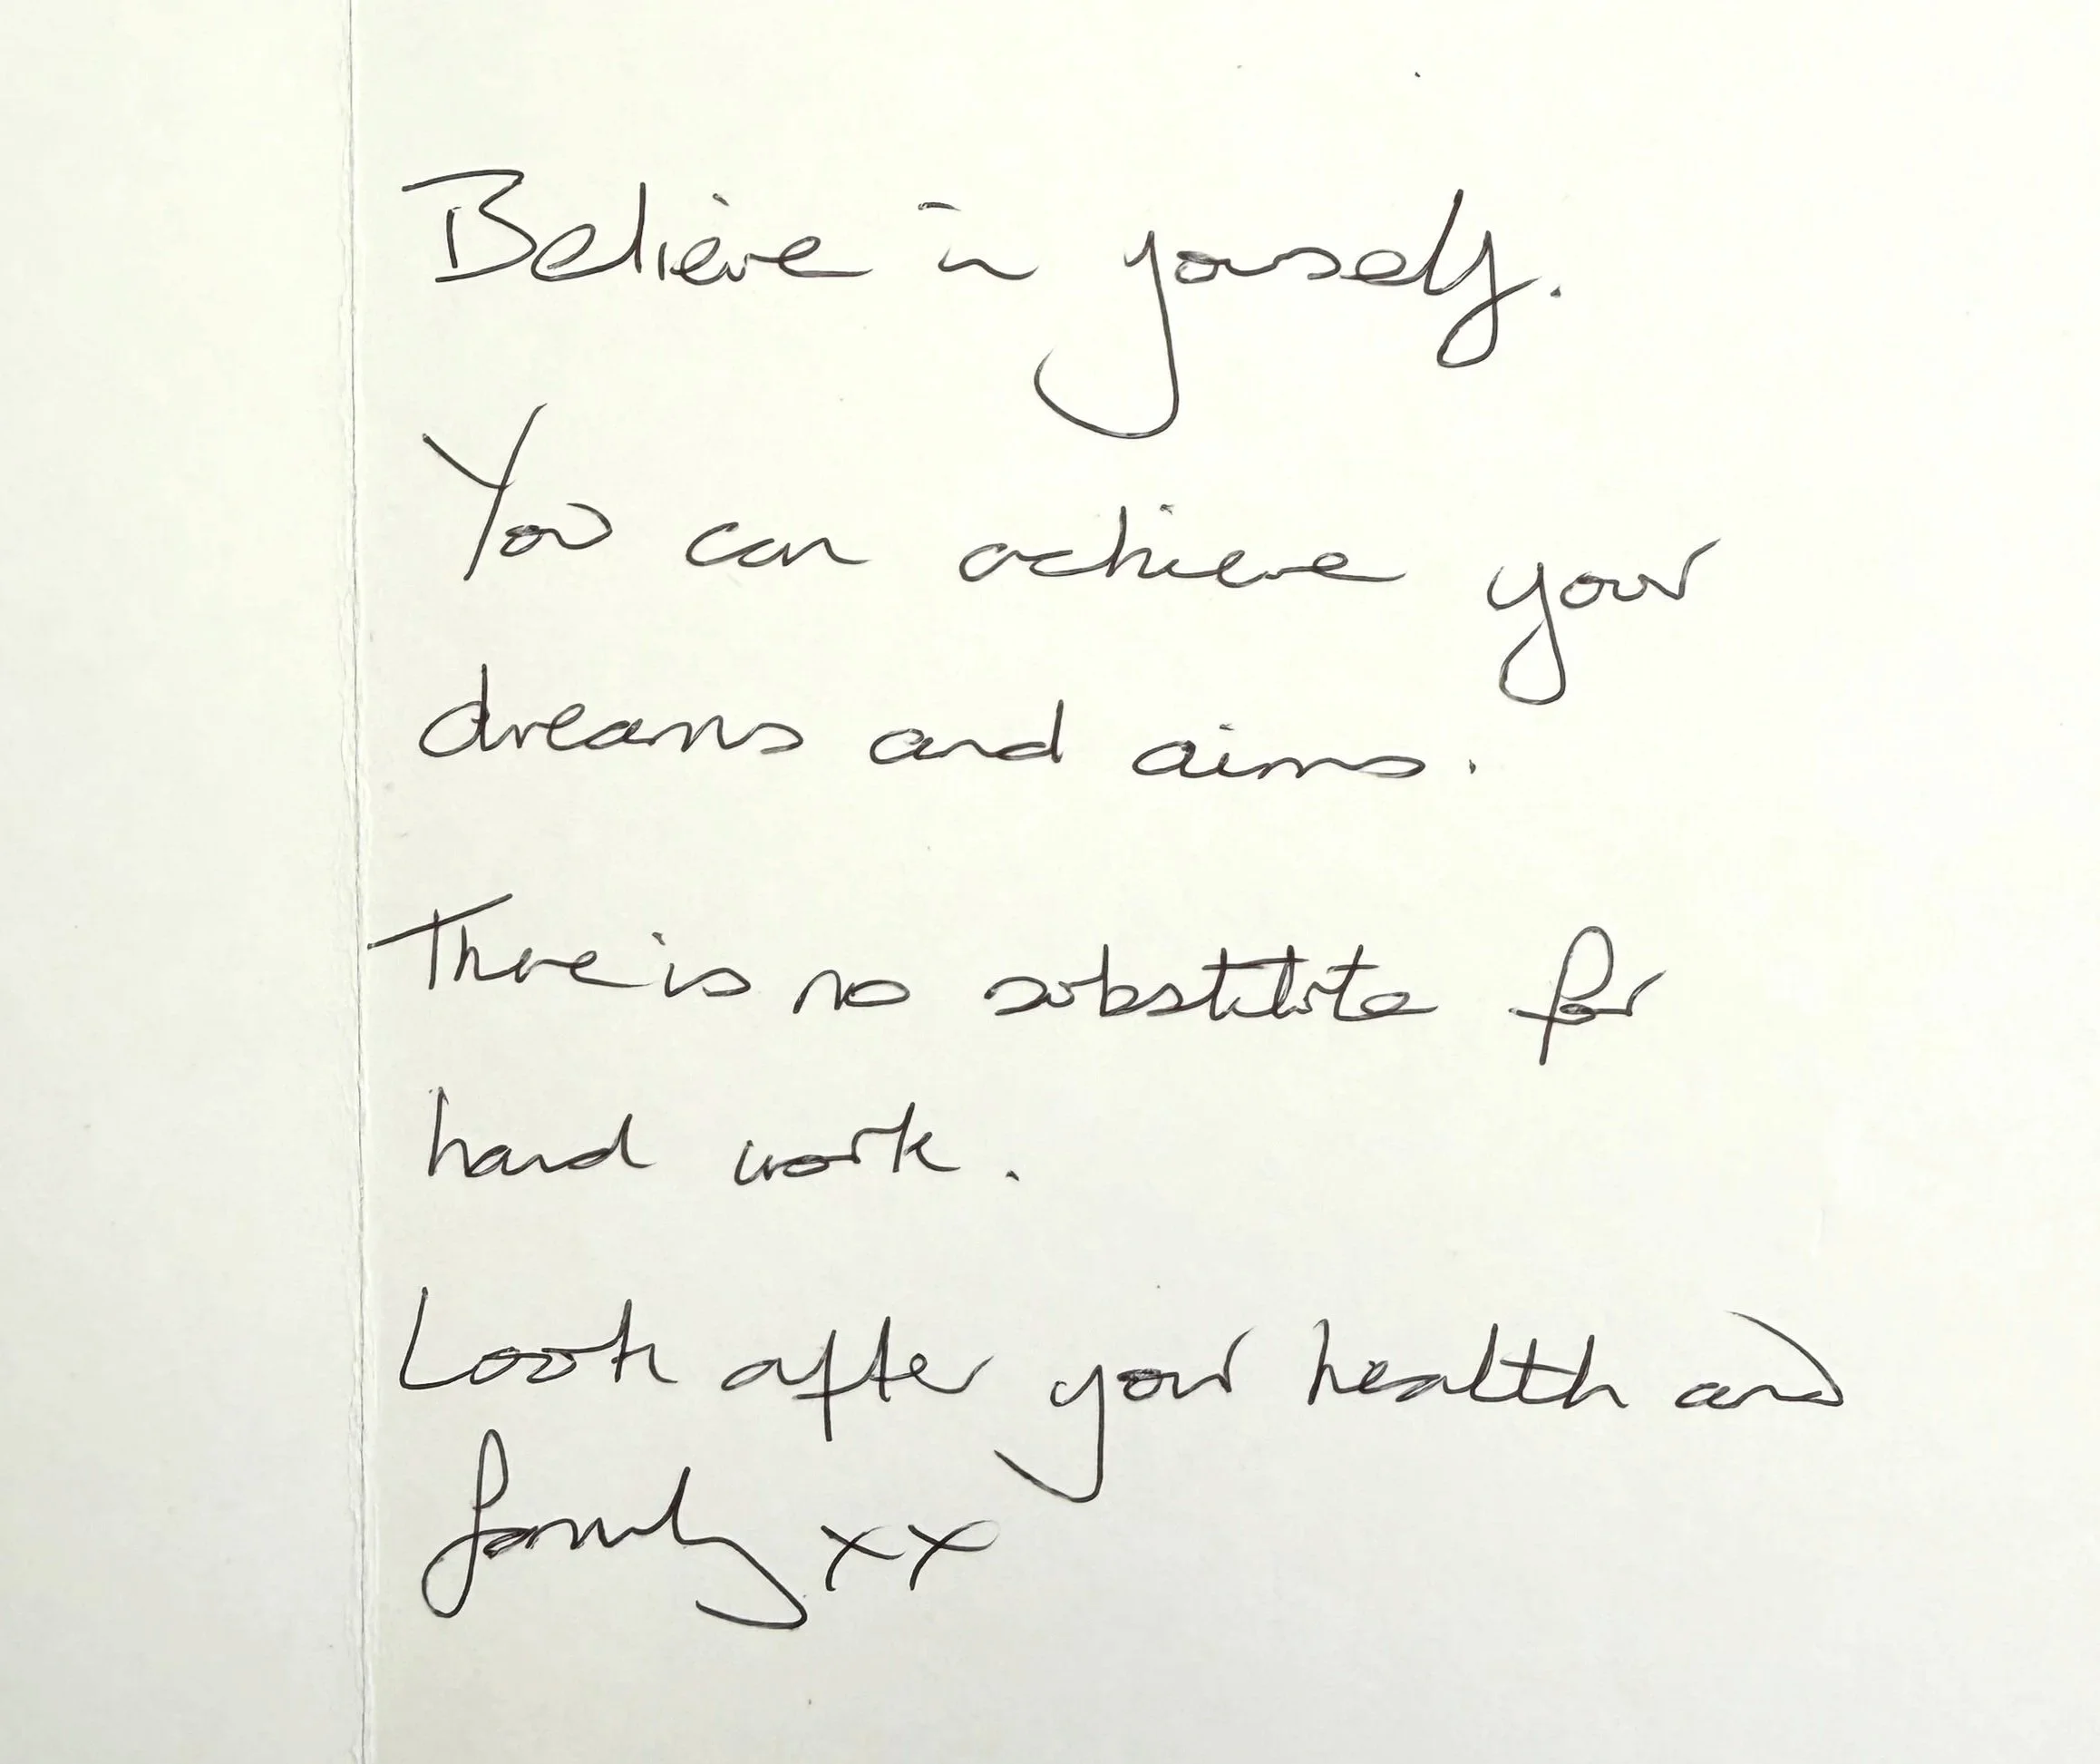 Believe in yourself.
You can achieve your
dreams and aims.
There is no substitute for
hard work.
Look after your health and
family xx